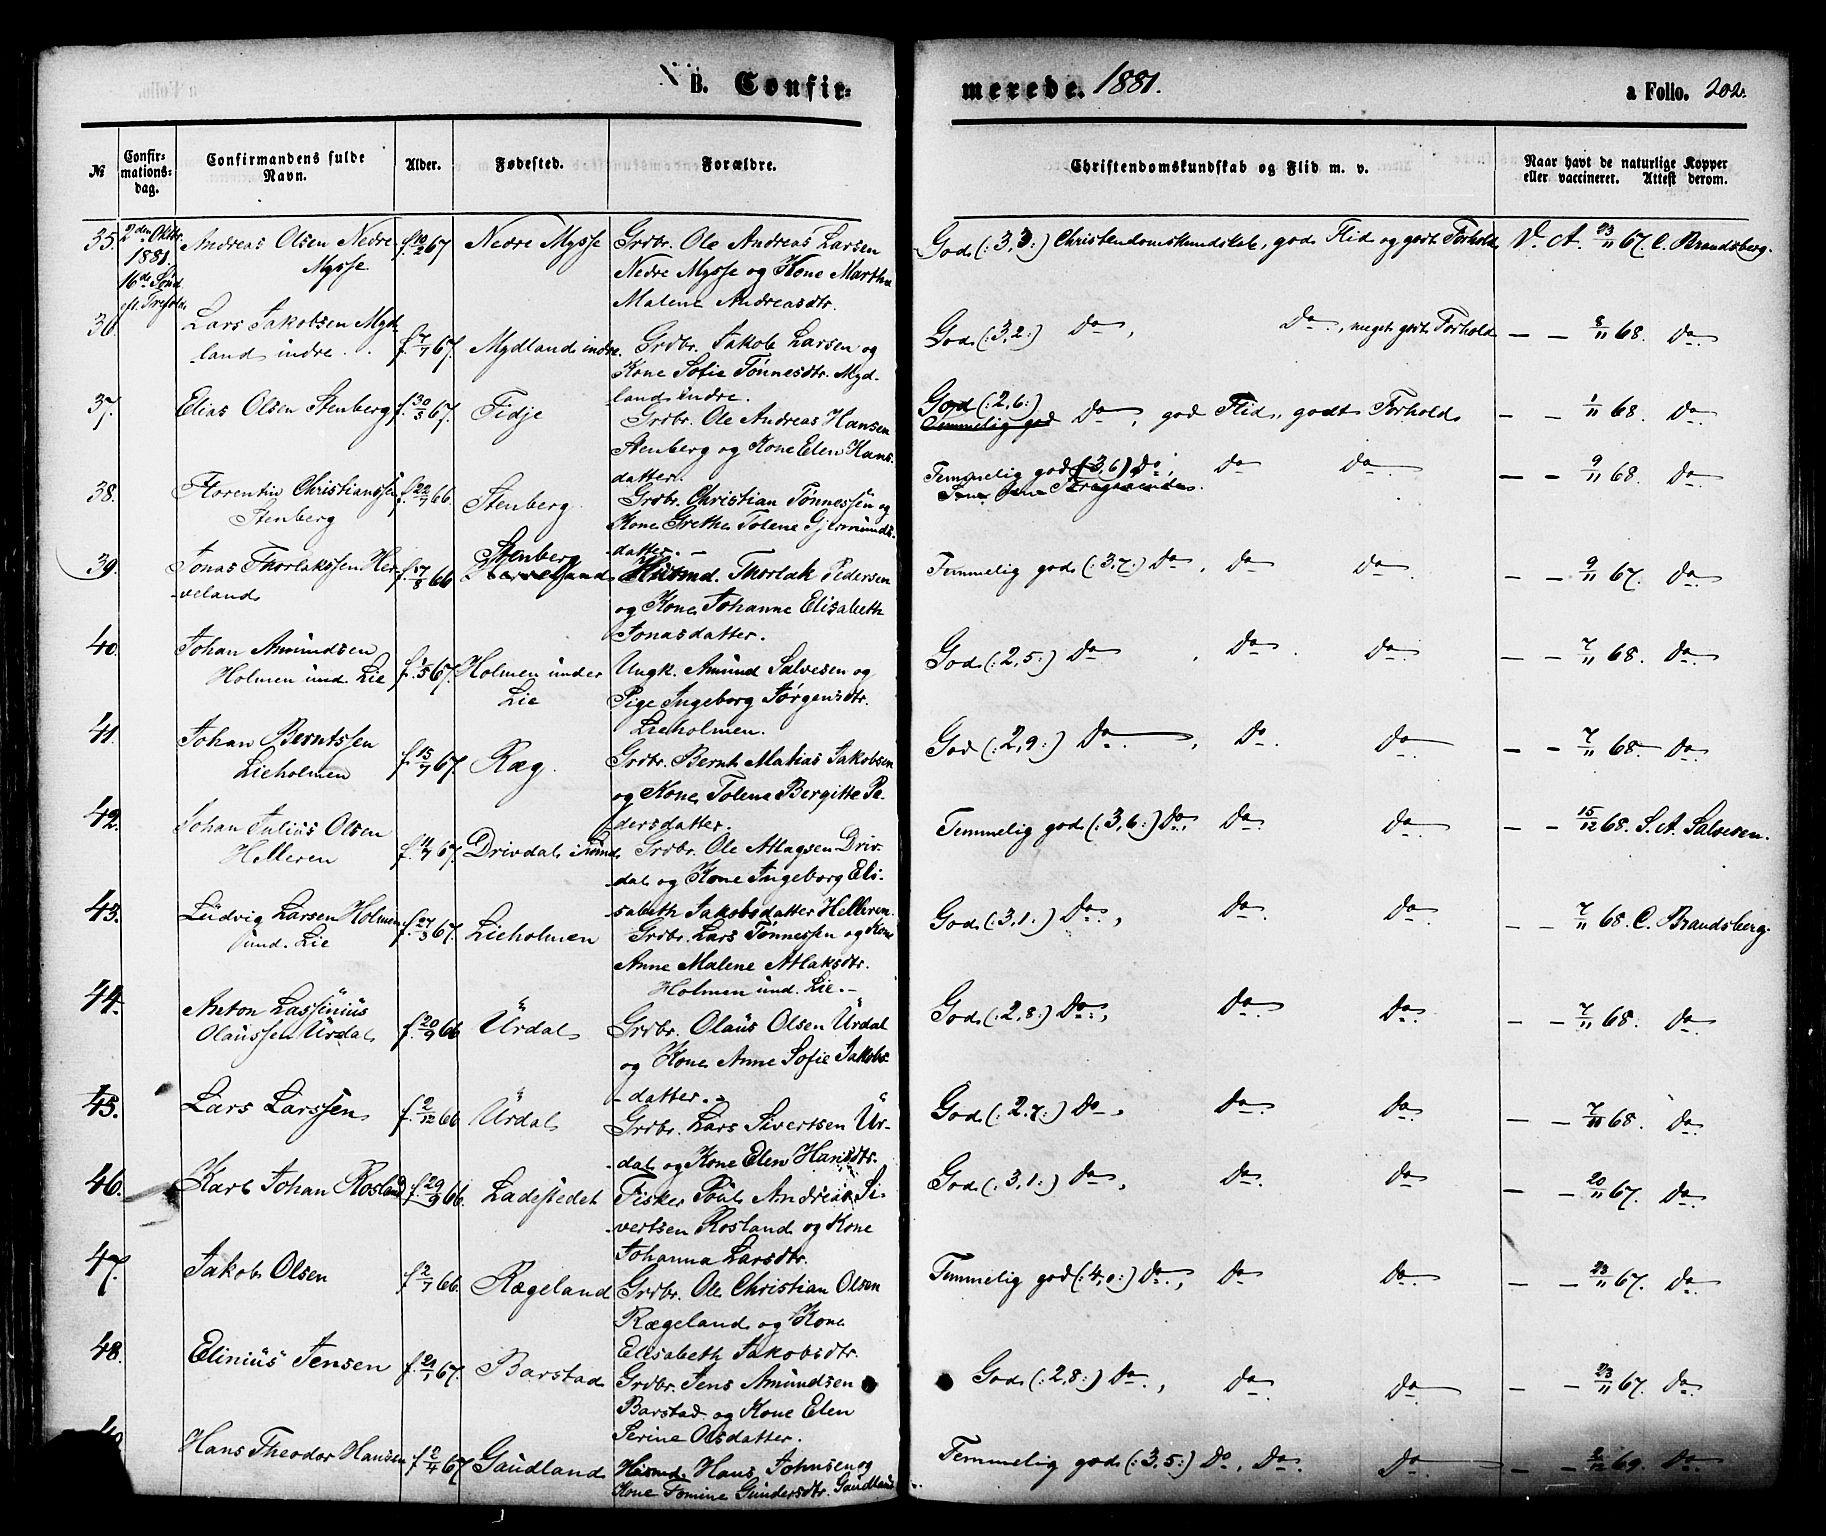 B. Confir-
merede. 1881.
a Folio. 202.
№
Confir-
mations-
dag.
Confirmandens fulde
Navn.
Alder.
Fødested.
Forældre.
Christendomskundskab og Flid m. v.
Naar havt de naturlige Kopper
eller vaccineret. Attest derom.
35. 2den Oktbr. Andreas Olsen Nedre f. 10/2 67 Nedre Mysse Grdbr. Ole Andreas Larsen God (: 3,3 :) Christendomskundskab, god Flid og godt Forhold V. A. 23/11 67. C. Brandsberg.
1881. Mysse Nedre Mysse og Kone Martha
16de Sønd. Malene Andreasdtr.
eft. Trefold.
36. Lars Jakobsen Myd- f. 7/7 67. Mydland indre. Grdbr. Jakob Larsen og God (: 3,2 :) Do, Do, meget godt Forhold — — 8/11 68. Do
land indre. Kone Sofie Tønnesdtr. Myd-
land indre.
37. Elias Olsen Stenberg f. 30/3 67. Fidje Grdbr. Ole Andreas Hansen God (: 2,6 :) Do, god Flid, godt Forhold — — 1/11 68. Do
Temmelig god
Stenberg og Kone Elen Hans-
datter.
38. Florentin Christianssen f. 22/7 66. Stenberg Grdbr. Christian Tønnessen og Temmelig god (3,6) Do, Do Do — — 9/11 68. Do
Stenberg Kone Grethe Tolene Gjermunds-
datter. —
39. Jonas Thorlakssen Her- f. 17/8 66 Stenberg Husmd. Thorlak Pedersen Temmelig god (: 3,7 :) Do, Do Do — — 9/11 67. Do
veland og Kone Johanne Elisabeth
Jonasdatter.
40. Johan Amundsen f. 1/5 67. Holmen under Ungk. Amund Salvesen og God (: 2,5 :) Do, Do. Do — — 7/11 68. Do
Holmen und. Lie Lie Pige Ingeborg Jørgensdtr.
Lieholmen.
41. Johan Berntssen f. 15/7 67. Ræg. Grdbr. Bernt Mathias Jakobsen God (: 2,9 :) Do, Do. Do — — 7/11 68 Do
Lieholmen og Kone Tolena Bergitte Pe-
dersdatter.
42. Johan Julius Olsen f. 11/7 67. Drivdal i Sund Grdbr. Ole Atlagsen Driv- Temmelig god (: 3,6 :) Do, Do Do — — 15/12 68. S. A. Salvesen.
Helleren dal og Kone Ingeborg Eli-
sabeth Jakobsdatter Helleren.
43. Ludvig Larsen Holmen f. 27/3 67. Lieholmen Grdbr. Lars Tønnessen og Kone God (: 3,1 :) Do, Do Do — — 7/11 68. C. Brandsberg.
und. Lie Anne Malene Atlaksdtr.
Holmen und. Lie. —
44. Anton Lassinius f. 20/9 66 Urdal Grdbr. Olaus Olsen Urdal God (: 2,8 :) Do, Do Do — — 7/11 68. Do
Olaussen Urdal og Kone Anne Sofie Jakobs-
datter. —
45. Lars Larssen f. 2/12 66 Urdal Grdbr. Lars Sivertsen Ur- God (: 2,7 :) Do, Do Do — — 7/11 68. Do
dal og Kone Elen Hansdtr.
46. Karl Johan Rosland f. 29/9 66. Ladestedet Fisker Poul Andreas Si- God (: 3,1 :) Do, Do Do — — 20/11 67. Do
vertsen Rosland og Kone
Johanna Larsdtr.
47. Jakob Olsen f. 2/7 66. Rægeland Grdbr. Ole Christian Olsen Temmelig god (: 4,0 :) Do, Do Do — — 23/11 67. Do
Rægeland og Kone
Elisabeth Jakobsdtr.
48. Elinius Jensen f. 21/1 67. Barstad Grdbr. Jens Amundsen God (: 2,8 :) Do, Do Do — — 23/11 67. Do
Barstad og Kone Elen
Serine Olsdatter.
Hans Theodor Hansen f. 2/4 67 Gaudland Husmd. Hans Johnsen og Temmelig god (: 3,5 :) Do, Do Do — — 2/12 69. Do
Kone Tomine Gundersdtr. Gaudland